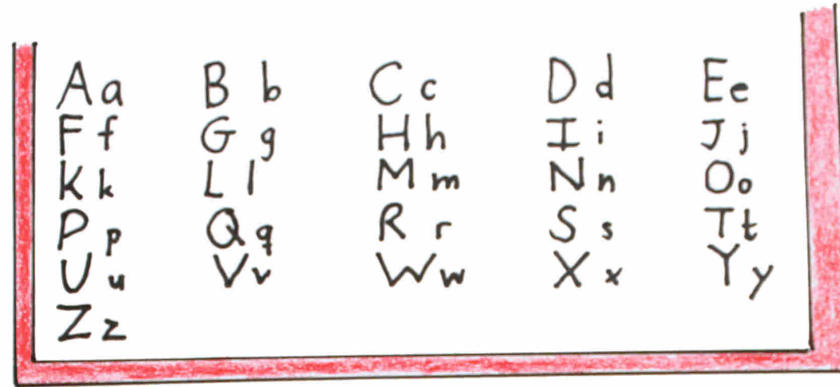 Aa Bb Cc Dd Ee
Ff Gg Hh Ii Jj
Kk Ll Mm Nn Oo
Pp Qq Rr Ss Tt
Uu Vv Ww Xx Yy
Zz